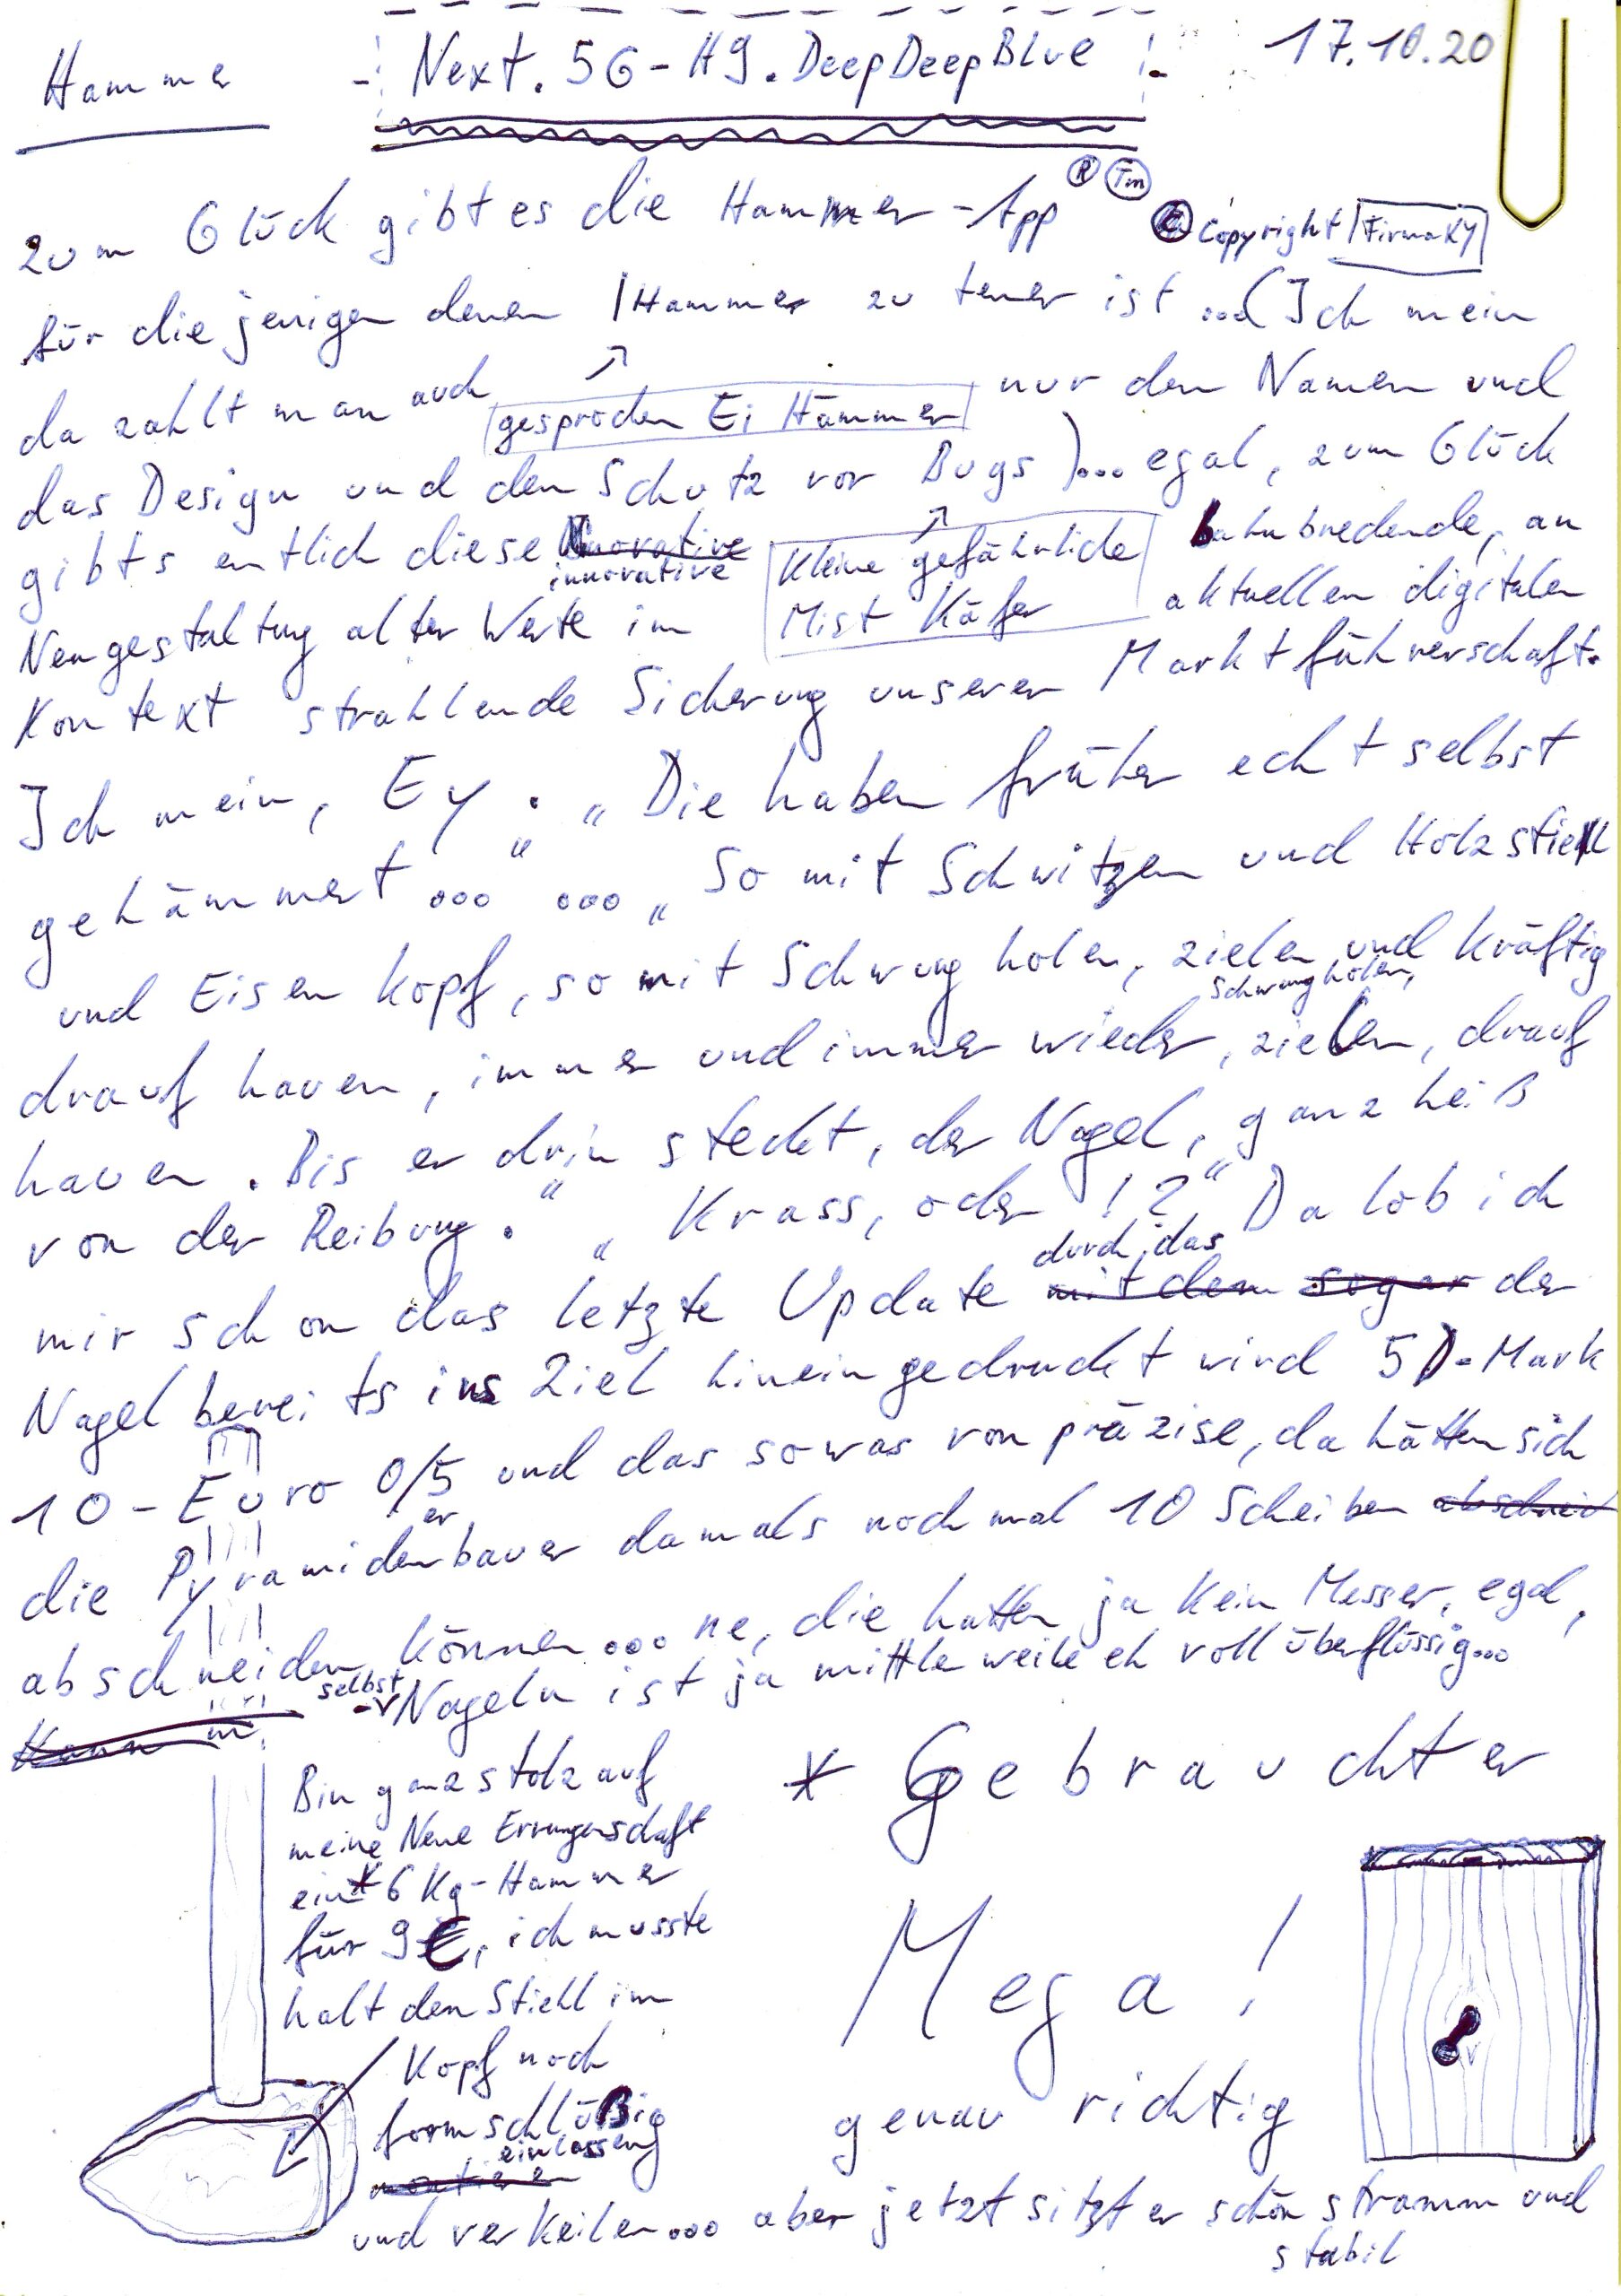 Hammer
Next. 5G-H9. DeepDeepBlue
17.10.20
zum Glück gibt es die Hammer-App ® ™
© Copyright Firma XY
für die jenigen denen I Hammer zu teuer ist ...(Ich mein
da zahlt man auch nur den Namen und
gesprochen Ei Hämmer
das Design und den Schutz vor Bugs)... egal, zum Glück
gibts entlich diese innovative bahnbrechende, an
Kleine gefährliche
Mist Käfer
Neugestaltung alter Werte im aktuellen digitalen
Kontext strahlende Sicherung unserer Marktführerschaft.
Ich mein, Ey. „Die haben früher echt selbst
gehämmert ..." ... „So mit Schwitzen und Holzstiel
und Eisenkopf, so mit Schwung holen, zielen und kräftig
drauf hauen, immer und immer wieder, Schwung holen, zielen, drauf
hauen. Bis er drin steckt, der Nagel, ganz heiß
von der Reibung." „Krass, oder !?" Da lob ich
mir schon das letzte Update durch das mit dem sogar der
Nagel bereits ins Ziel hineingedruckt wird 5D-Mark
10-Euro 0/5 und das sowas von präzise, da hätten sich
die Pyramidenerbauer damals noch mal 10 Scheiben abschneid
abschneiden können... ne, die hatten ja kein Messer, egal,
Kann selbst Nageln ist ja mittlerweile eh voll überflüssig...
Bin ganz stolz auf
meine Neue Errungenschaft
ein* 6 Kg-Hammer
für 9€, ich musste
halt den Stiehl im
Kopf noch
formschlüßig
einlassen
montieren
und verkeilen... aber jetzt sitzt er schön stramm und
stabil
* Gebrauchter
Mega!
genau richtig